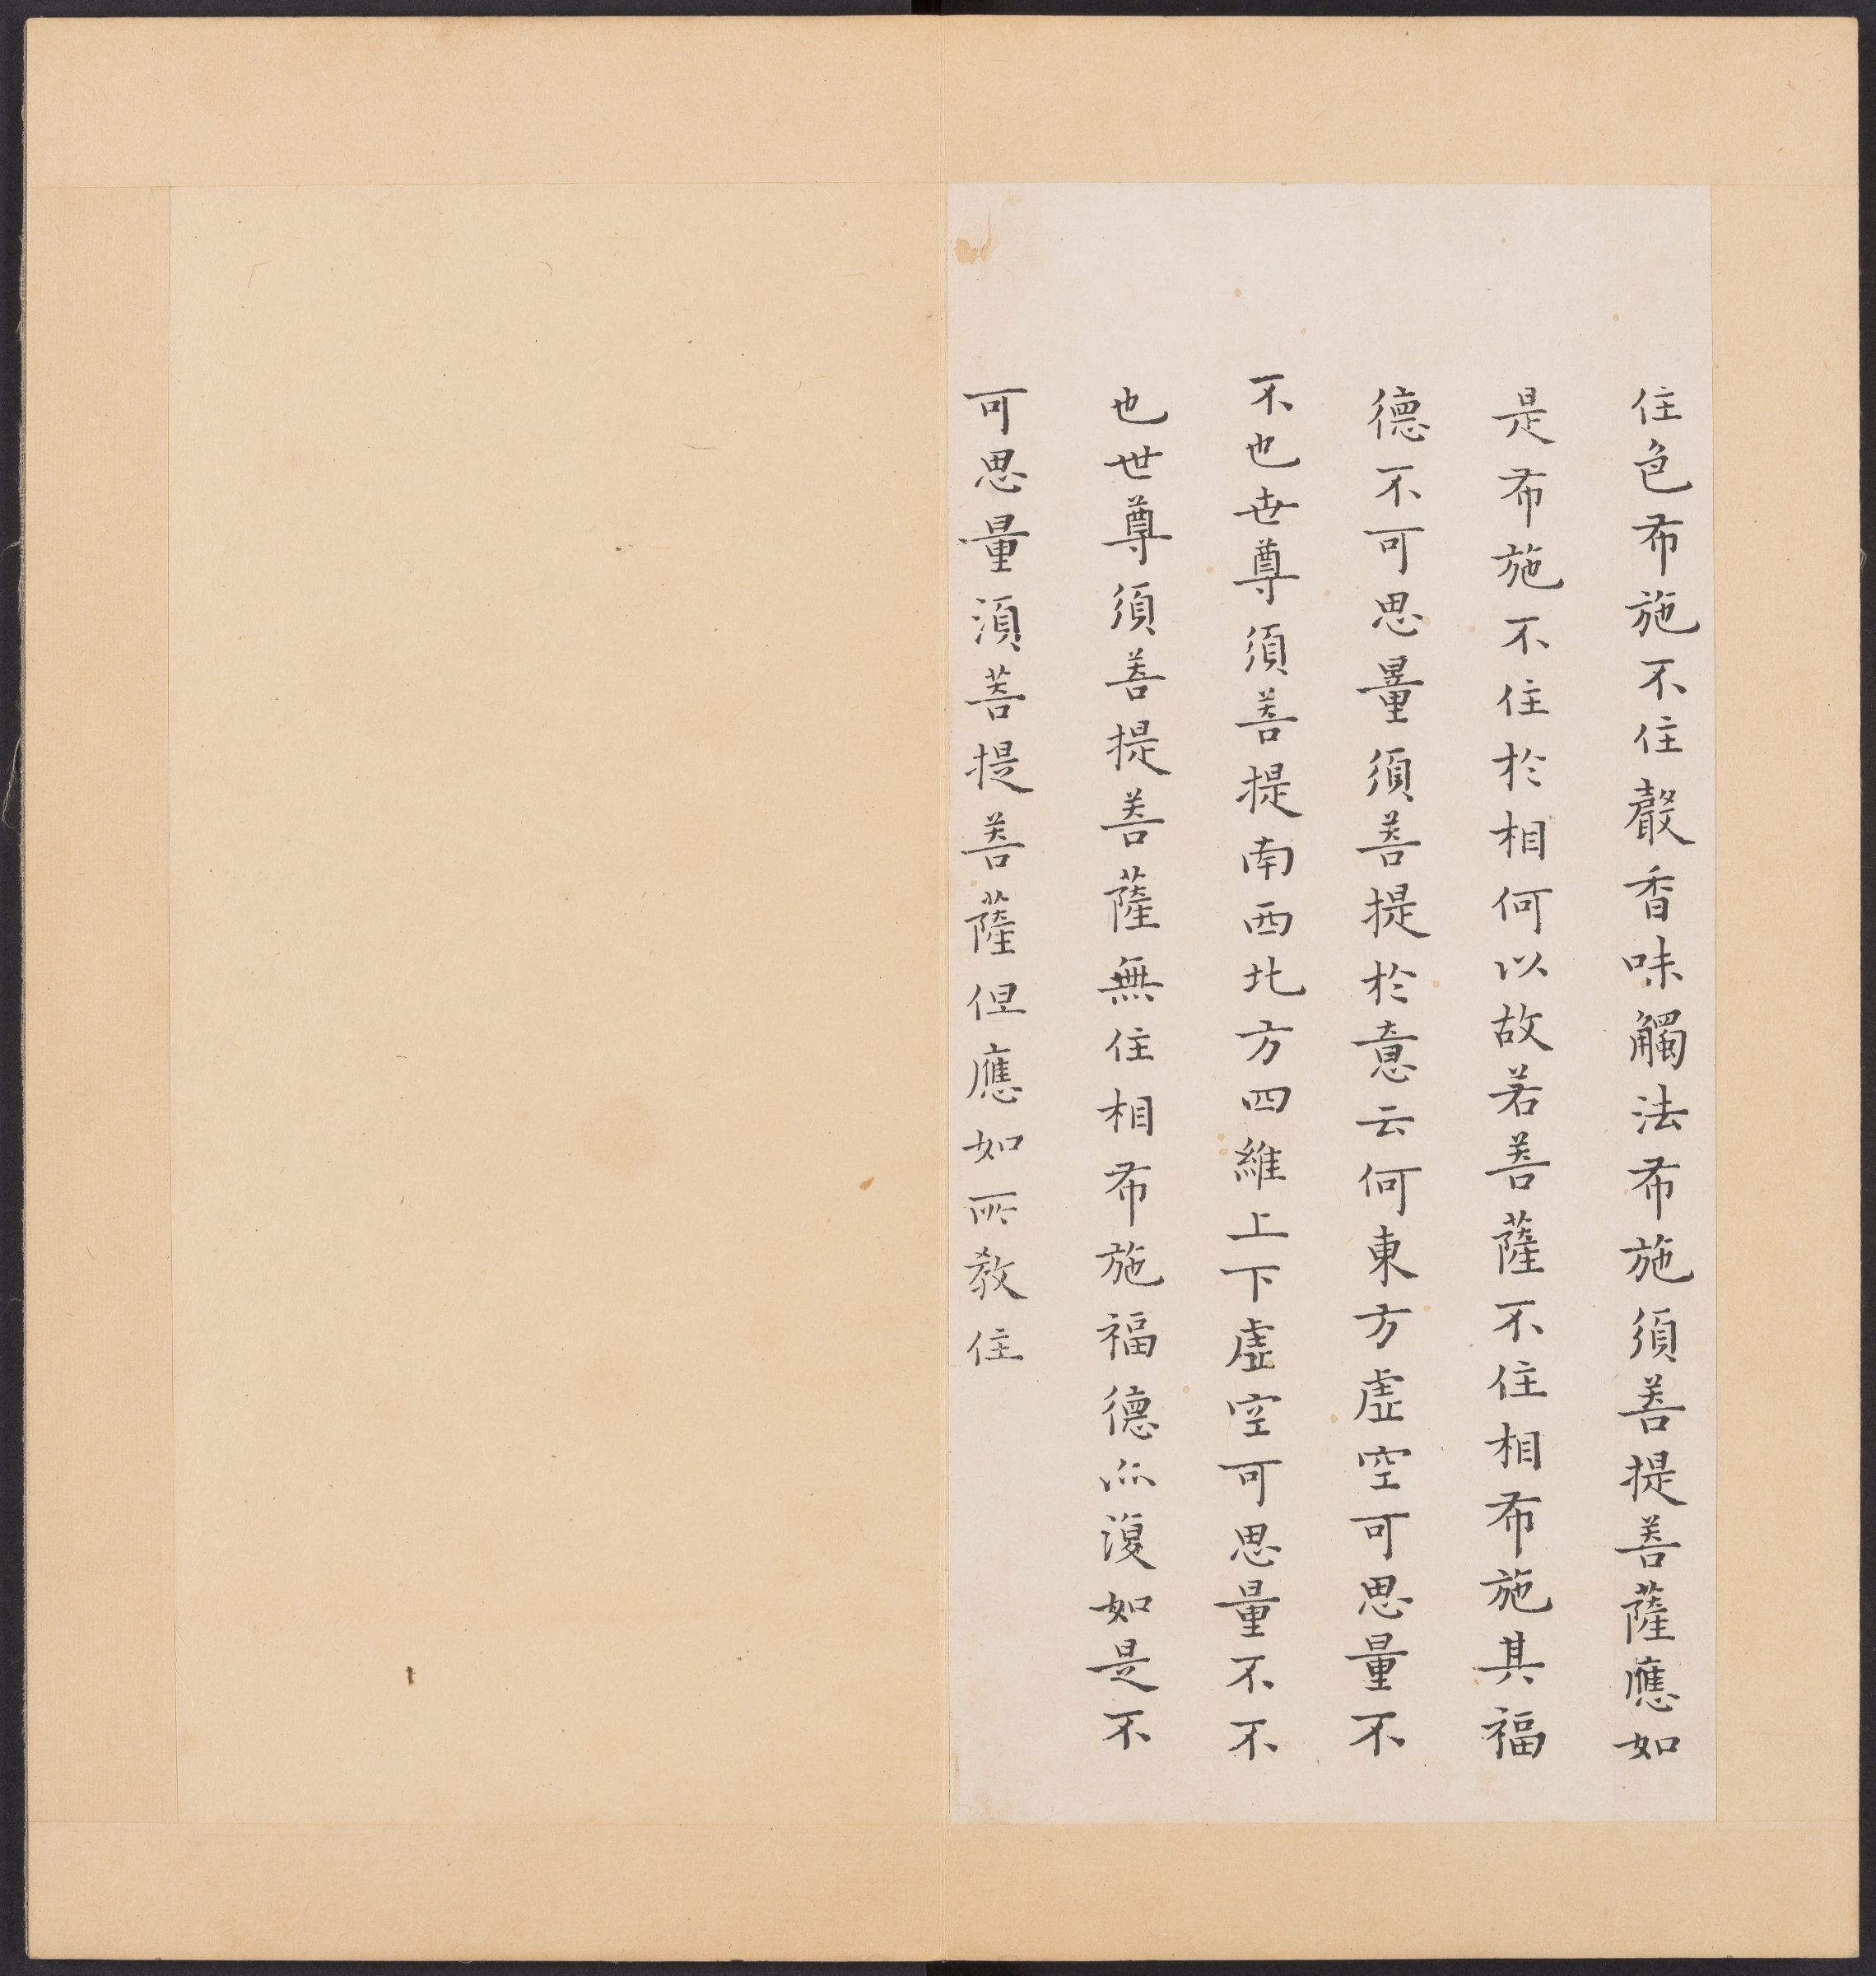 住色布施不住聲香味觸法布施須菩提菩薩應如
是布施不住於相何以故若菩薩不住相布施其福
德不可思量須菩提於意云何東方虛空可思量不
不也世尊須菩提南西北方四維上下虛空可思量不不
也世尊須菩提菩薩無住相布施福德亦復如是不
可思量須菩提菩薩但應如所教住